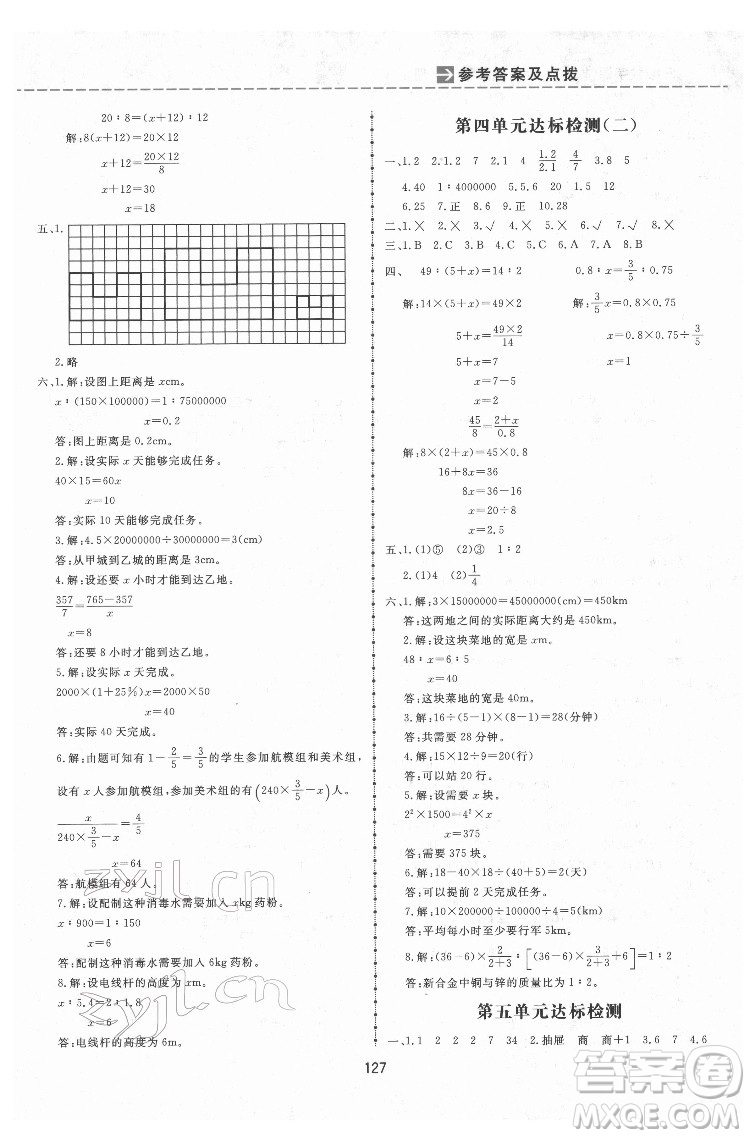 参考答案及点拨
20∶8=(x+12)∶12
解:8(x+12)=20×12
x+12=20×12/8
x+12=30
x=18
五、1.
2.略
六、1.解:设图上距离是 x cm。
x∶(150×100000)=1∶75000000
x=0.2
答:图上距离是 0.2cm。
2.解:设实际 x 天能够完成任务。
40×15=60x
x=10
答:实际 10 天能够完成任务。
3.解:4.5×20000000÷30000000=3(cm)
答:从甲城到乙城的距离是 3cm。
4.解:设还要 x 小时才能到达乙地。
357/7=765-357/x
x=8
答:还要 8 小时才能到达乙地。
5.解:设实际 x 天完成。
2000×(1+25%)x=2000×50
x=40
答:实际 40 天完成。
6.解:由题可知有 1-2/5=3/5 的学生参加航模组和美术组,
设有 x 人参加航模组,参加美术组的有(240×3/5-x)人。
x/240×3/5-x=4/5
x=64
答:航模组有 64 人。
7.解:设配制这种消毒水需要加入 x kg 药粉。
x∶900=1∶150
x=6
答:配制这种消毒水需要加入 6kg 药粉。
8.解:设电线杆的高度为 x m。
x∶5.4=2∶1.8
x=6
答:电线杆的高度为 6m。
第四单元达标检测(二)
一、1.2 2.1.2 7 2.1 4 1.2/2.1 4/7 3.8 5
4.40 1∶4000000 5.5.6 20 1.5 12
6.25 7.正 8.6 9.正 10.28
二、1.× 2.× 3.√ 4.√ 5.×
三、1.B 2.C 3.B 4.C 5.A 6.C 7.A 8.B
四、 49∶(5+x)=14∶2 0.8∶x=3/5∶0.75
解:14×(5+x)=49×2 解:3/5x=0.8×0.75
5+x=49×2/14 x=0.8×0.75÷3/5
5+x=7 x=1
x=7-5
x=2
45/8=2+x/0.8
解:8×(2+x)=45×0.8
16+8x=36
8x=36-16
x=20÷8
x=2.5
五、1.(1)⑤ (2)③ 1∶2
2.(1)4 (2)1/4
六、1.解:3×15000000=45000000(cm)=450km
答:这两地之间的实际距离大约是 450km。
2.解:设这块菜地的宽是 x m。
48∶x=6∶5
x=40
答:这块菜地的宽是 40m。
3.解:16÷(5-1)×(8-1)=28(分钟)
答:共需要 28 分钟。
4.解:15×24÷18=20(行)
答:可以站 20 行。
5.解:设需要 x 块。
2²×1500=4²×x
x=375
答:需要 375 块。
6.解:18-40×18÷(40+5)=2(天)
答:可以提前 2 天完成。
7.解:10×200000÷100000÷4=5(km)
答:平均每小时至少行军 5km。
8.解:(36-6)×2/2+3∶[(36-6)×3/2+3+6]=1∶2
答:新合金中铜与锌的质量比为 1∶2。
第五单元达标检测
一、1.1 2 2 2 7 34 2.抽屉 商 商+1 3.6 7 4.6
127
zyjl.cn
zyjl.cn
答案圈
MXQE.COM